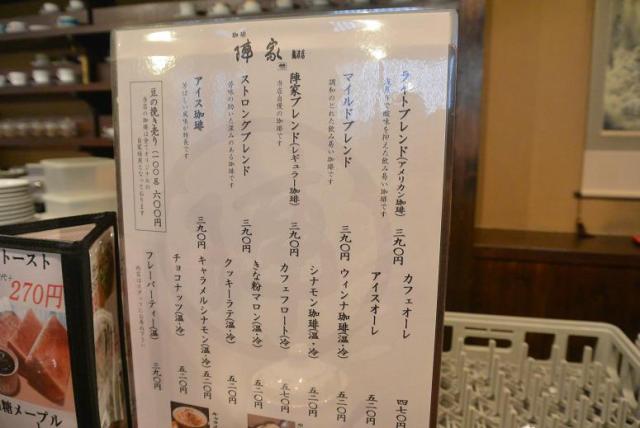 珈琲
陣家
ライトブレンド(アメリカン珈琲) 三九〇円
浅煎りで酸味を抑えた飲み易い珈琲です
マイルドブレンド 三九〇円
調和のとれた飲み易い珈琲です
陣家ブレンド(レギュラー珈琲) 三九〇円
当店自慢の珈琲です
ストロングブレンド 三九〇円
苦味の効いた深みのある珈琲です
アイス珈琲 三九〇円
芳ばしい風味が特長です
豆の挽き売り(一〇〇g) 六〇〇円
カフェオーレ 四七〇円
アイスオーレ 五二〇円
ウィンナ珈琲(温・冷) 五二〇円
シナモン珈琲(温・冷) 五二〇円
カフェフロート(冷) 五七〇円
きな粉マロン(温・冷) 五二〇円
クッキーラテ(温・冷) 五二〇円
キャラメルシナモン(温・冷) 五二〇円
チョコナッツ(温・冷) 五二〇円
フレーバーティー(温) 三九〇円
トースト
270円
糖メープル